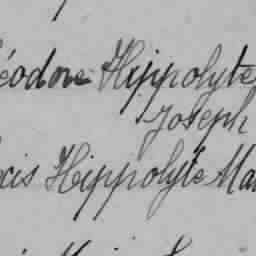 éodore Hippolyte
Joseph
cis Hippolyte Ma